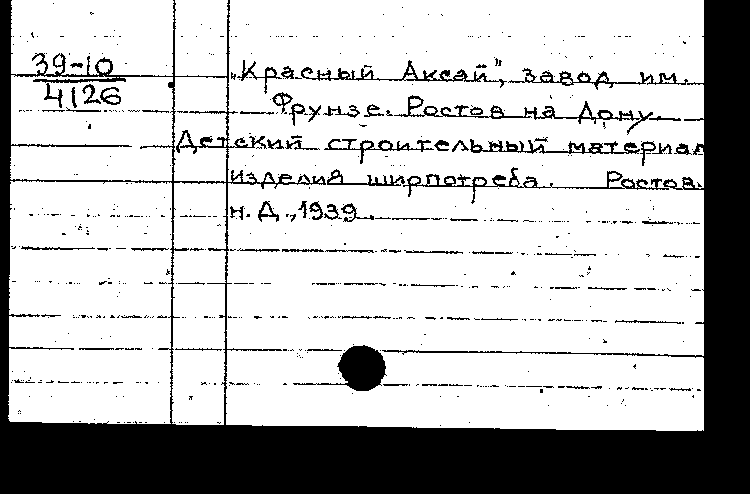 39-10
4126
„Красный Аксай", завод им.
Фрунзе. Ростов на Дону.
Детский строительный материал
изделия ширпотреба. Ростов.
н. Д., 1939.